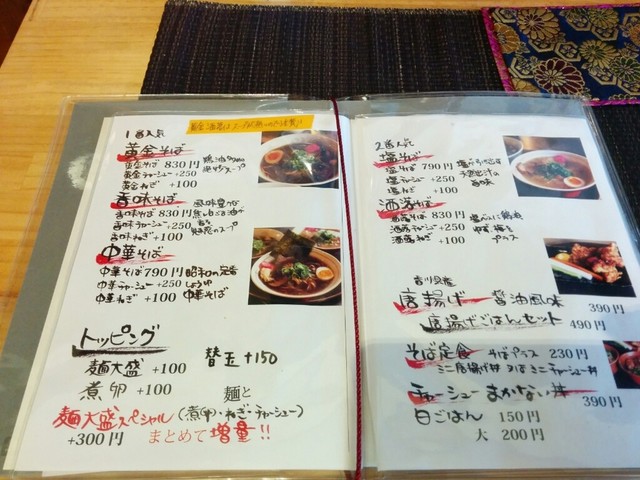 1番人気
黄金そば
黄金そば 830円
黄金チャーシュー +250
黄金ねぎ +100
香味そば
香味そば 830円
香味チャーシュー +250
香味ねぎ +100
中華そば
中華そば 790円 昭和の定番
中華チャーシュー +250 しょうゆ
中華ねぎ +100 中華そば
トッピング
麺大盛 +100
替玉 +150
煮卵 +100
麺と
麺大盛スペシャル (煮卵・ねぎ・チャーシュー)
+300円 まとめて増量!!
2番人気
塩そば
塩そば 790円
塩チャーシュー +250
塩ねぎ +100
洒落そば
洒落そば 830円
洒落チャーシュー +250
洒落ねぎ +100
唐揚げ 醤油風味 390円
唐揚げごはんセット 490円
そば定食 そばプラス 230円
ミニ唐揚げ丼 又はミニチャーシュー丼
チャーシューまかない丼 390円
白ごはん 150円
大 200円